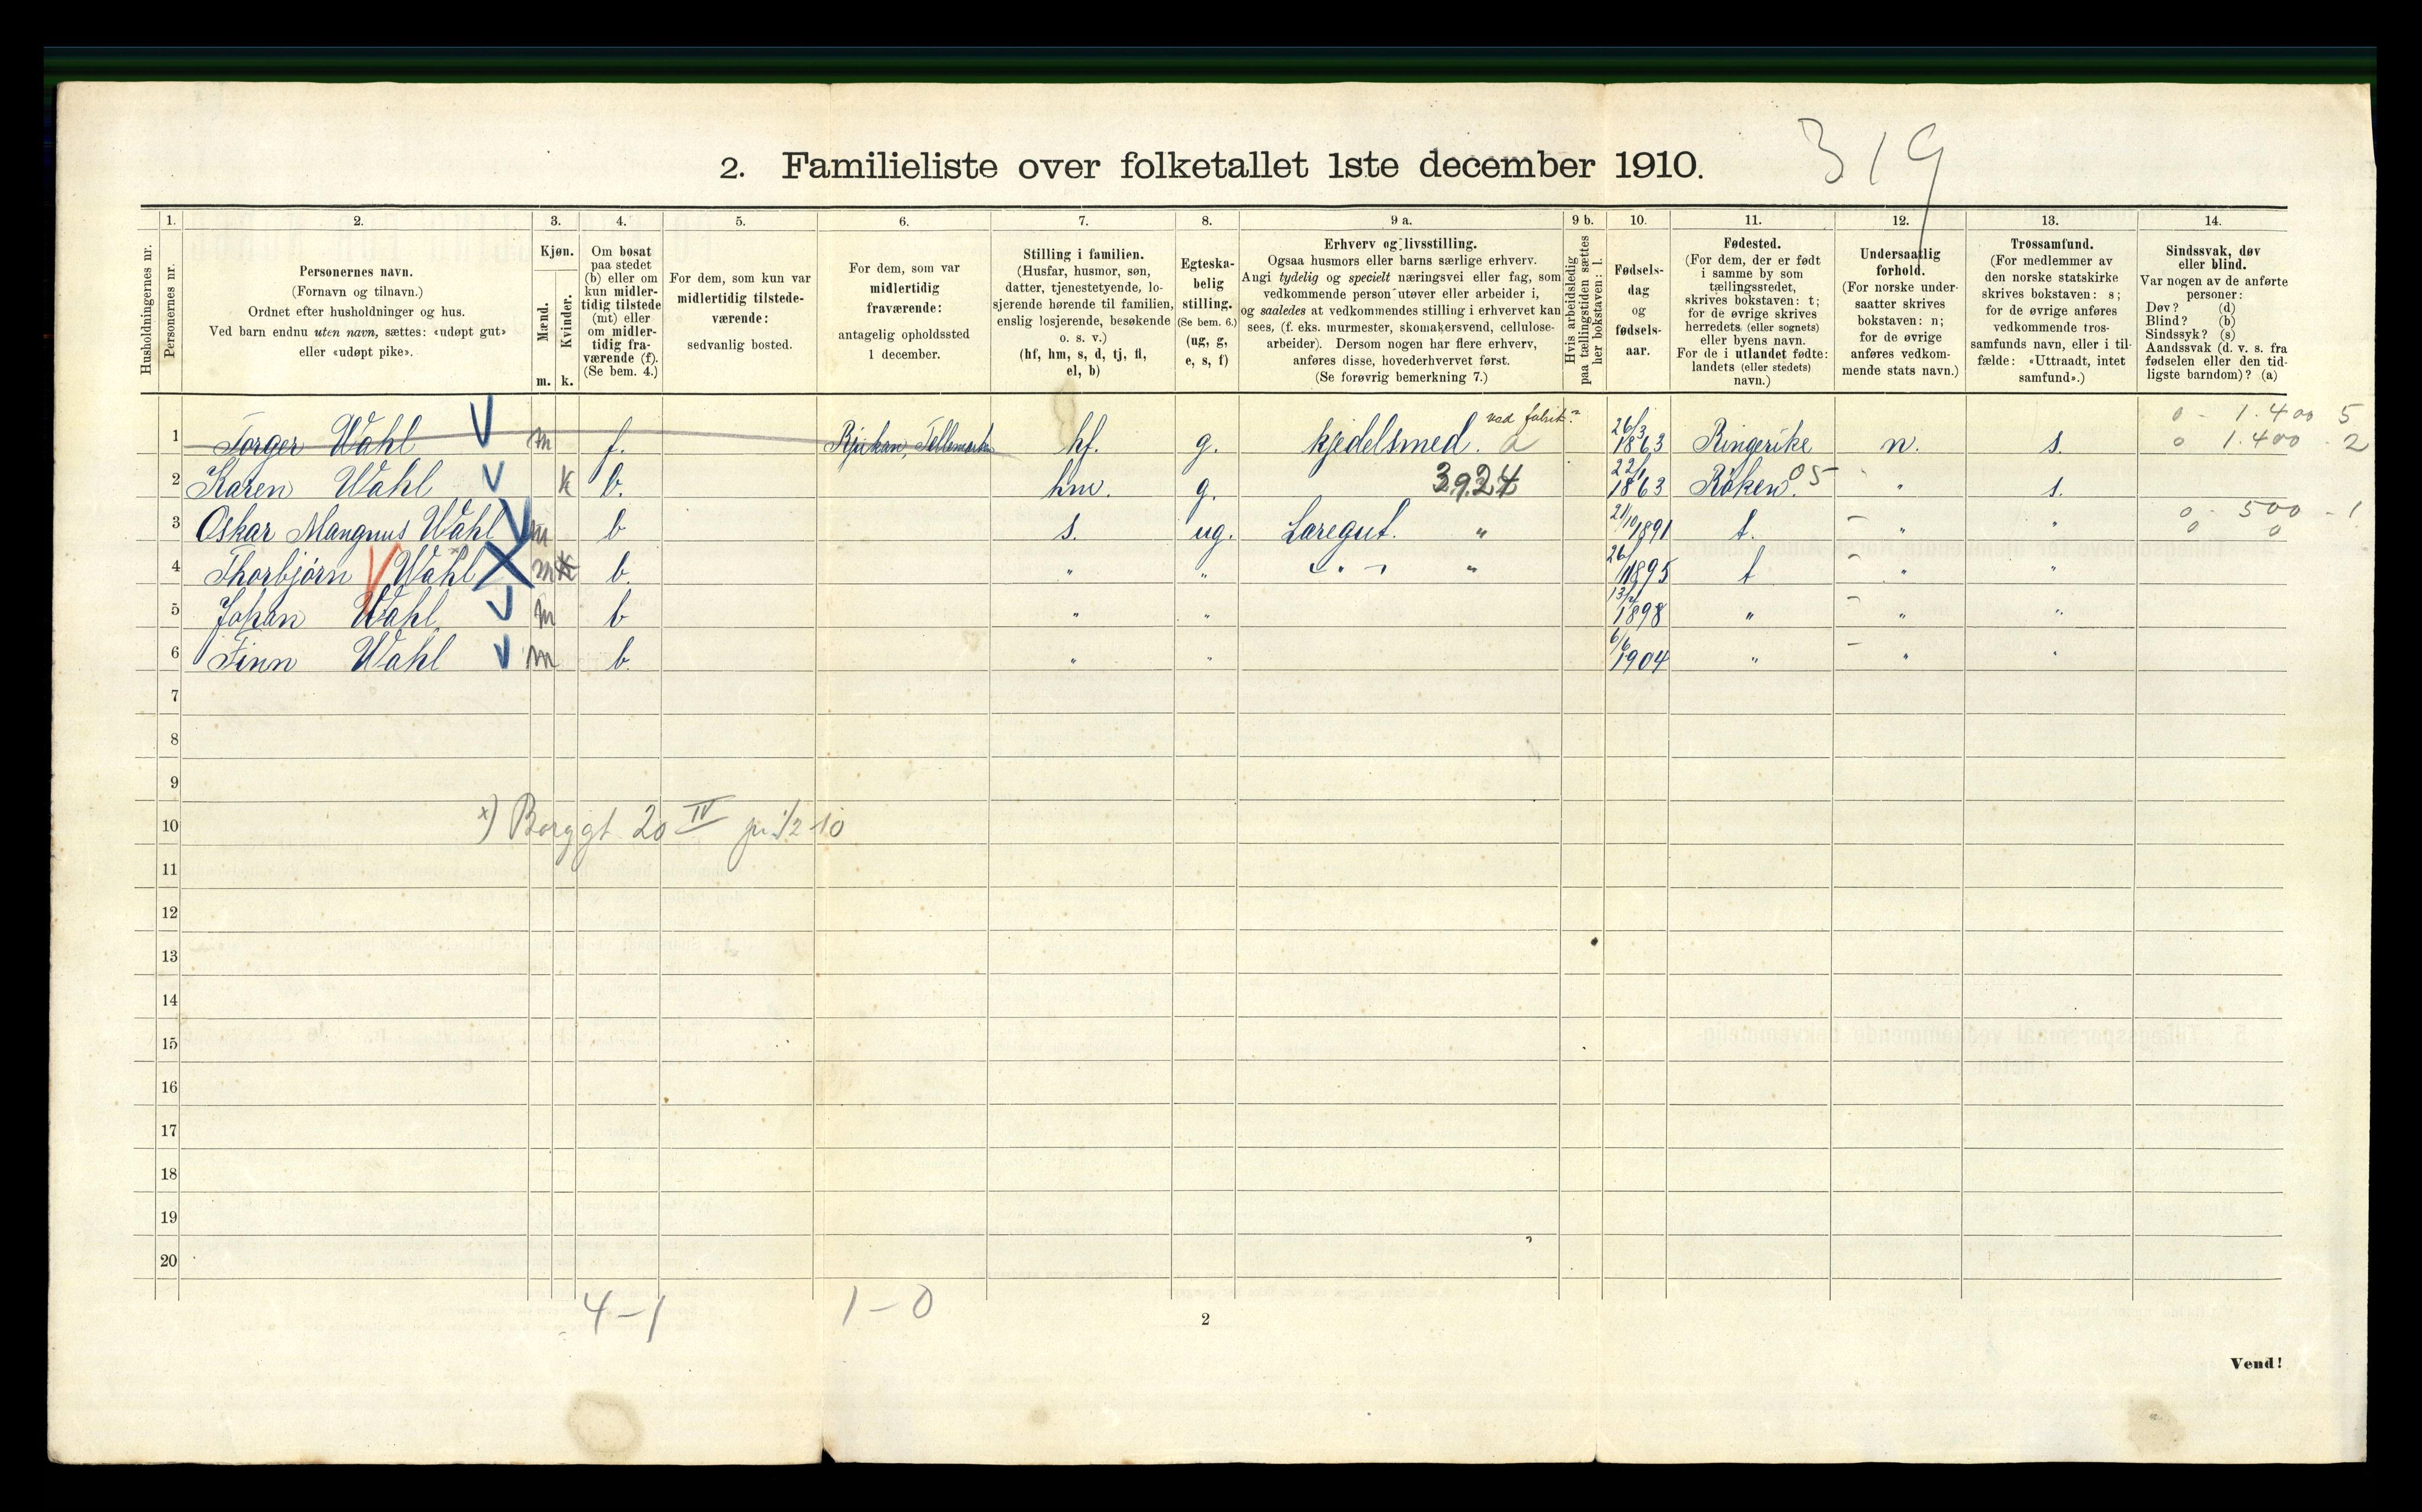 319
2. Familieliste over folketallet 1ste december 1910.
1. 2. 3. 4. 5. 6. 7. 8. 9 a. 9 b. 10. 11. 12. 13. 14.
Husholdningernes nr.
Personernes nr.
Personernes navn.
(Fornavn og tilnavn.)
Ordnet efter husholdninger og hus.
Ved barn endnu uten navn, sættes: «udøpt gut»
eller «udøpt pike».
Kjøn.
Mænd.
Kvinder.
m. k.
Om bosat
paa stedet
(b) eller om
kun midler-
tidig tilstede
(mt) eller
om midler-
tidig fra-
værende (f).
(Se bem. 4.)
For dem, som kun var
midlertidig tilstede-
værende:
sedvanlig bosted.
For dem, som var
midlertidig
fraværende:
antagelig opholdssted
1 december.
Stilling i familien.
(Husfar, husmor, søn,
datter, tjenestetyende, lo-
sjerende hørende til familien,
enslig losjerende, besøkende
o. s. v.)
(hf, hm, s, d, tj, fl,
el, b)
Egteska-
belig
stilling.
(Se bem. 6.)
(ug, g,
e, s, f)
Erhverv og livsstilling.
Ogsaa husmors eller barns særlige erhverv.
Angi tydelig og specielt næringsvei eller fag, som
vedkommende person utøver eller arbeider i,
og saaledes at vedkommendes stilling i erhvervet kan
sees, (f. eks. murmester, skomakersvend, cellulose-
arbeider). Dersom nogen har flere erhverv,
anføres disse, hovederhvervet først.
(Se forøvrig bemerkning 7.)
Hvis arbeidsledig
paa tællingstiden sættes
her bokstaven: l.
Fødsels-
dag
og
fødsels-
aar.
Fødested.
(For dem, der er født
i samme by som
tællingsstedet,
skrives bokstaven: t;
for de øvrige skrives
herredets (eller sognets)
eller byens navn.
For de i utlandet fødte:
landets (eller stedets)
navn.)
Undersaatlig
forhold.
(For norske under-
saatter skrives
bokstaven: n;
for de øvrige
anføres vedkom-
mende stats navn.)
Trossamfund.
(For medlemmer av
den norske statskirke
skrives bokstaven: s;
for de øvrige anføres
vedkommende tros-
samfunds navn, eller i til-
fælde: «Uttraadt, intet
samfund».)
Sindssvak, døv
eller blind.
Var nogen av de anførte
personer:
Døv? (d)
Blind? (b)
Sindssyk? (s)
Aandssvak (d. v. s. fra
fødselen eller den tid-
ligste barndom)? (a)
0 - 1.400 5
1 Torger Wahl m f. Rjukan, Tellemarken hf. g. kjedelsmed. ved fabrik a 26/3 1863 Ringerike n. s. 0 1.400 - 2
2 Karen Wahl k b. hm. g. 3924 22/1 1863 Røken. 05 " s.
0 - 500 - 1
3 Oskar Mangnus Wahl m b s. ug. Løregut. " 21/10 1891 t. " " 0 0
4 Thorbjørn Wahl x m k b. " " " " 1895 t " "
5 Johan Wahl m b " " 1898 " " "
6 Finn Wahl m b. " " 6/6 1904 " " "
7
8
9
10 x) Borggt 20 IV 1/2 10
11
12
13
14
15
16
17
18
19
20
4-1 1-0
2
Vend!